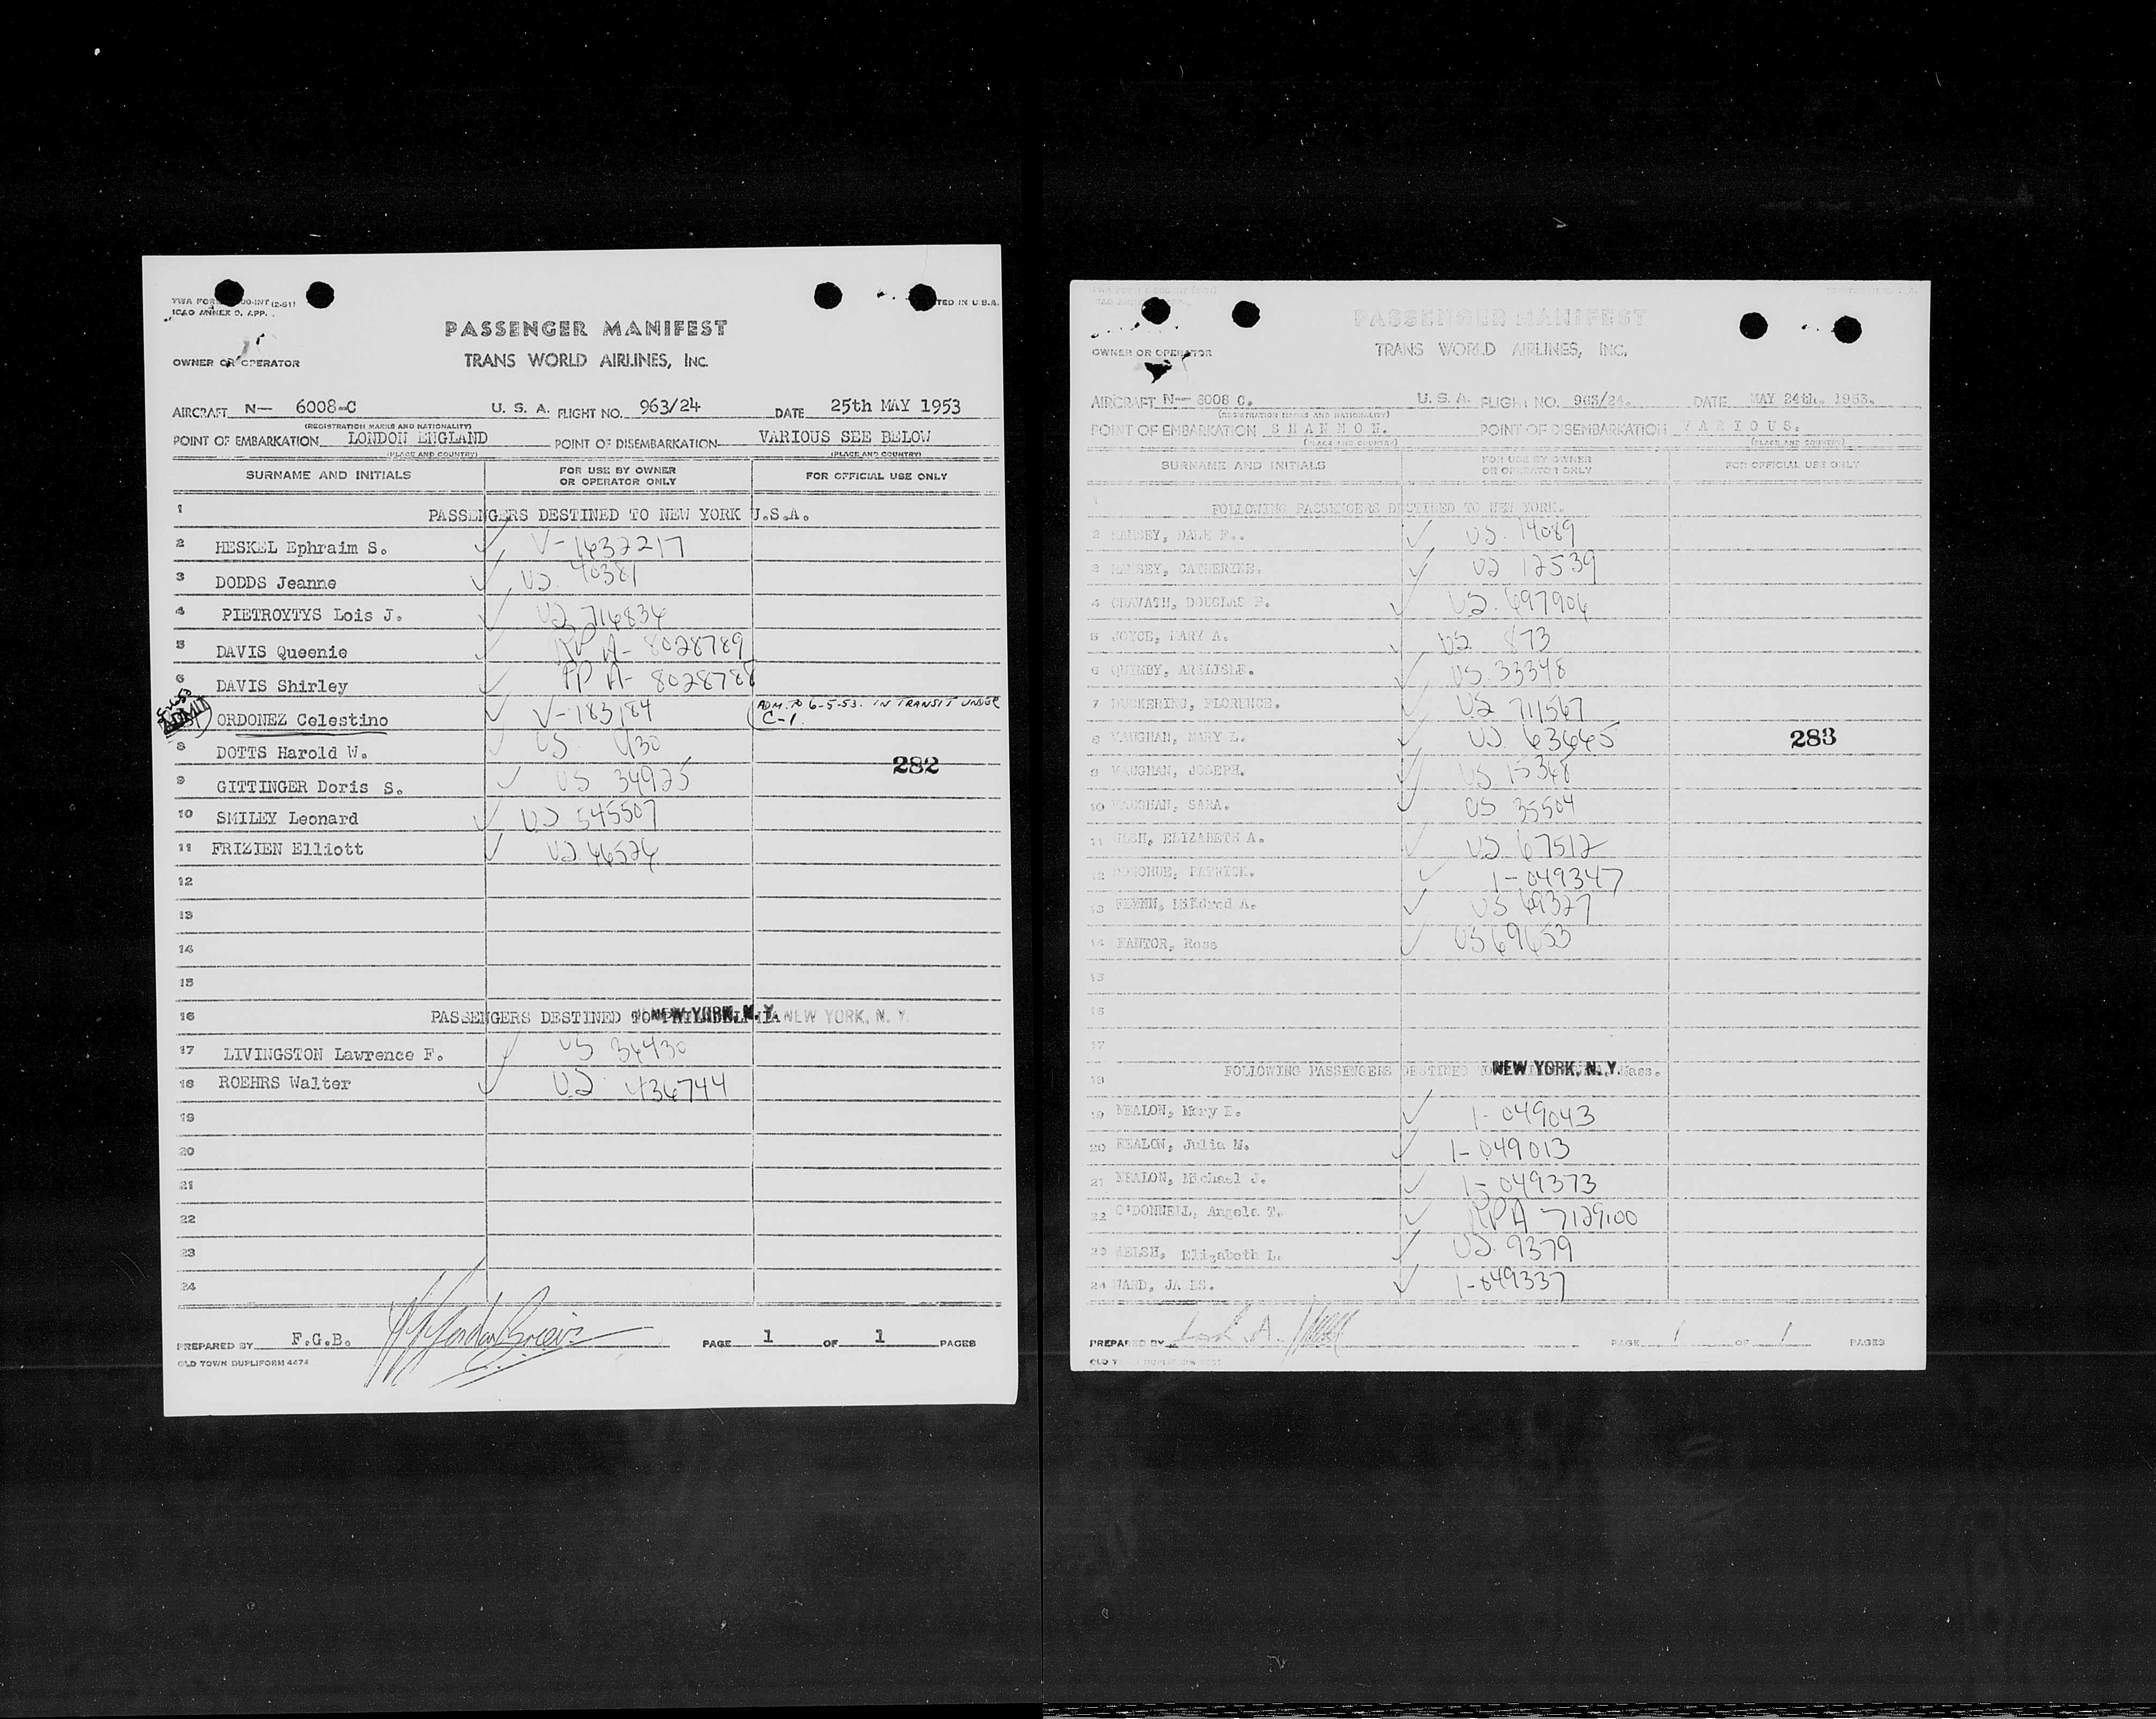 PASSENGER MANIFEST
TRANS WORLD AIRLINES, INC.
OWNER OR OPERATOR
AIRCRAFT N— 6008-C U. S. A. FLIGHT NO. 963/24 DATE 25th MAY 1953
(REGISTRATION MARKS AND NATIONALITY)
POINT OF EMBARKATION LONDON ENGLAND POINT OF DISEMBARKATION VARIOUS SEE BELOW
(PLACE AND COUNTRY) (PLACE AND COUNTRY)
SURNAME AND INITIALS FOR USE BY OWNER OR OPERATOR ONLY FOR OFFICIAL USE ONLY
1 PASSENGERS DESTINED TO NEW YORK U.S.A.
2 HESKEL Ephraim S. V-1632217
3 DODDS Jeanne US. 40381
4 PIETROYTYS Lois J. US 716834
5 DAVIS Queenie RP A- 8028789
6 DAVIS Shirley RP A- 8028788
ADMIT ORDONEZ Celestino V-183184 ADM. TO 6-5-53. IN TRANSIT UNDER C-1.
8 DOTTS Harold W. US 430
282
9 GITTINGER Doris S. US 34925
10 SMILEY Leonard US 545507
11 FRIZIEN Elliott US 46526
12
13
14
15
16 PASSENGERS DESTINED TO NEW YORK, N. Y. NEW YORK, N. Y.
17 LIVINGSTON Lawrence F. US 36430
18 ROEHRS Walter US 436744
19
20
21
22
23
24
PREPARED BY F.G.B. PAGE 1 OF 1 PAGES
OLD TOWN DUPLIFORM 4474
PASSENGER MANIFEST
TRANS WORLD AIRLINES, INC.
OWNER OR OPERATOR
AIRCRAFT N— 6008 C. U. S. A. FLIGHT NO. 963/24. DATE MAY 24th. 1953.
(REGISTRATION MARKS AND NATIONALITY)
POINT OF EMBARKATION SHANNON. POINT OF DISEMBARKATION VARIOUS.
(PLACE AND COUNTRY) (PLACE AND COUNTRY)
SURNAME AND INITIALS FOR USE BY OWNER OR OPERATOR ONLY FOR OFFICIAL USE ONLY
1 FOLLOWING PASSENGERS DESTINED TO NEW YORK.
2 RAMSEY, DALE F.. US. 14089
3 RAMSEY, CATHERINE. US 12539
4 CRAVATH, DOUGLAS F. US. 697906
5 JOYCE, MARY A. US 873
6 QUIMBY, ARDLISLE. US. 33348
7 DUCKERING, FLORENCE. US 711567
8 VAUGHAN, MARY L. US. 63665
283
9 VAUGHAN, JOSEPH. US 15368
10 VAUGHAN, SARA. US 35504
11 ELIZABETH A. US 67512
12 DONOHUE, PATRICK. 1-049347
13 FLYNN, Mildred A. US 69327
14 KANTOR, Rose US 69653
15
16
17
18 FOLLOWING PASSENGERS DESTINED TO NEW YORK, N. Y. Mass.
19 NEALON, Mary E. 1-049043
20 NEALON, Julia M. 1-049013
21 NEALON, Michael J. 1-049373
22 O'DONNELL, Angela T. RPA 7129100
23 WELSH, Elizabeth L. US. 9379
24 WARD, JAMES. 1-049337
PREPARED BY PAGE 1 OF 1 PAGES